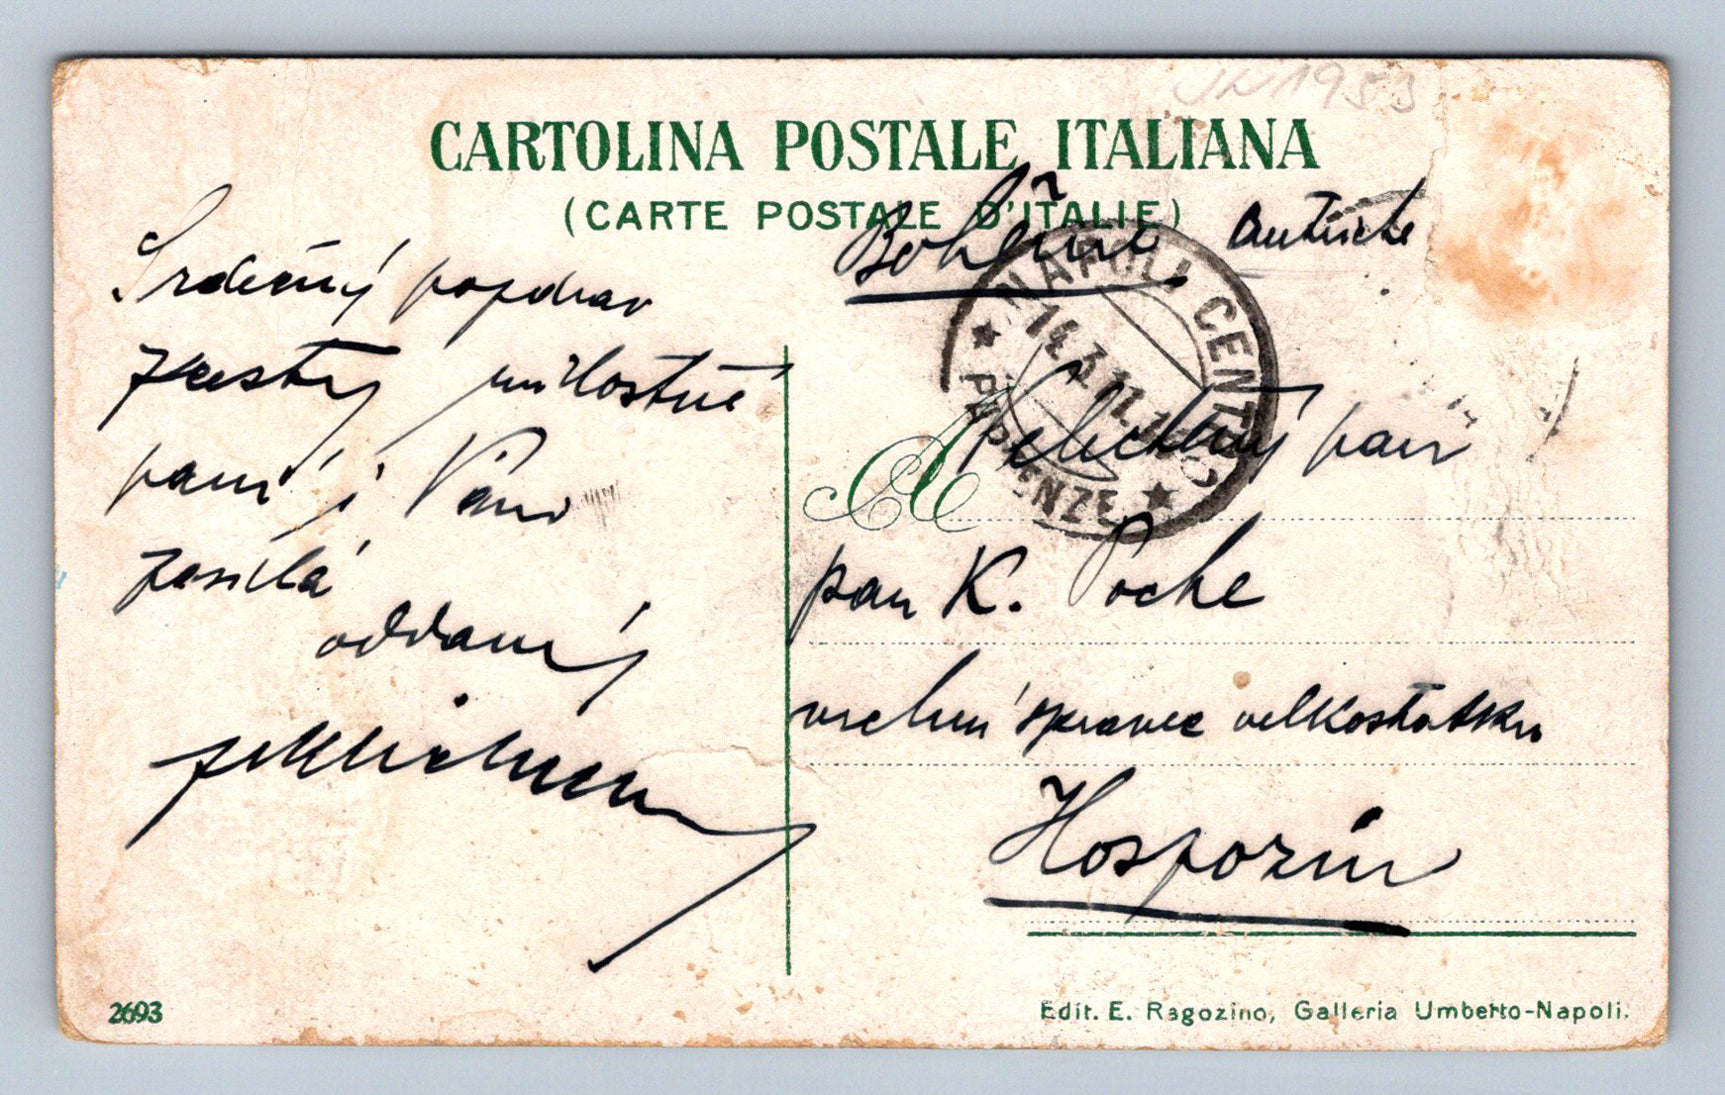 CARTOLINA POSTALE ITALIANA
(CARTE POSTALE D'ITALIE)
Srdečný pozdrav
milostné
paní i Pánu
zasílá
oddaný
Bohême Autriche
NAPOLI CENTRO
14.3.11
PARTENZE
A
Velectěný pan
pan K. Poche
vrchní správce velkostatku
Hospozín
2693
Edit. E. Ragozino, Galleria Umberto-Napoli.